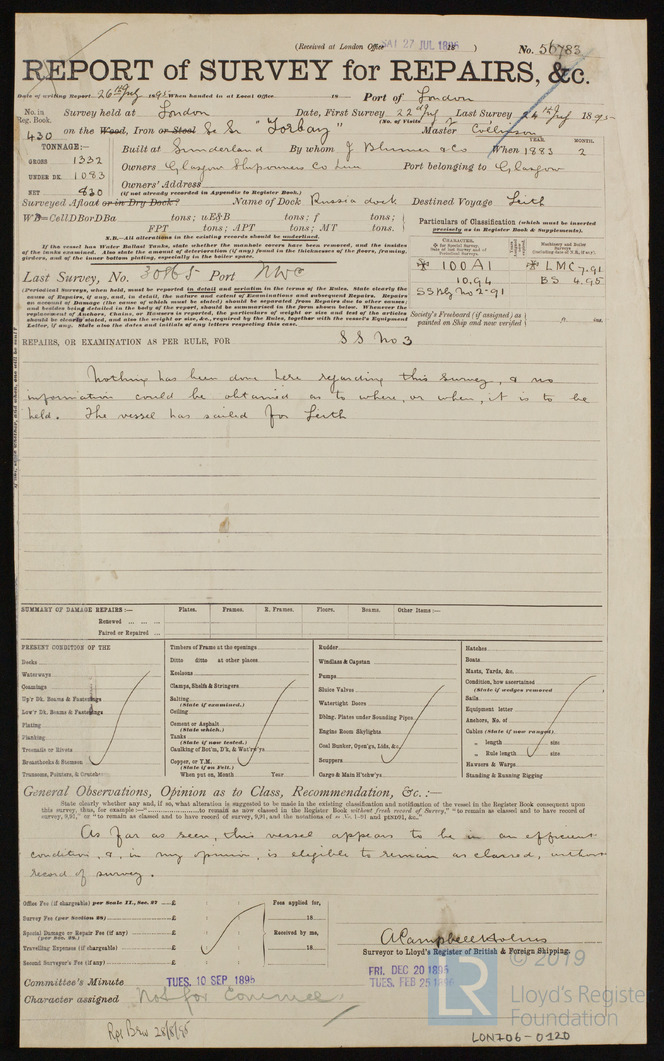 (Received at London Office SAT 27 JUL 1895 18 ) No. 56783
REPORT of SURVEY for REPAIRS, &c.
Date of writing Report 26th July 1895 When handed in at Local Office 18 Port of London
No. in Reg. Book. Survey held at London Date, First Survey 22nd July Last Survey 24th July 1895
(No. of Visits 2 )
430 on the Wood, Iron or Steel Sc Sr "Torbay" Master Collinson
TONNAGE:— Built at Sunderland By whom J Blumer & Co When 1883 2
YEAR. MONTH.
GROSS 1332 Owners Glasgow Shipowners Co Lim Port belonging to Glasgow
UNDER DK. 1083 Owners' Address
(if not already recorded in Appendix to Register Book.)
NET 830
Surveyed Afloat or in Dry Dock? Name of Dock Russia dock Destined Voyage Leith
WB=CellDBorDBa tons; uE&B tons; f tons;
FPT tons; APT tons; MT tons.
N.B.—All alterations in the existing records should be underlined.
If the vessel has Water Ballast Tanks, state whether the manhole covers have been removed, and the insides
of the tanks examined. Also state the amount of deterioration (if any) found in the thicknesses of the floors, framing,
girders, and of the inner bottom plating, especially in the boiler space.
Particulars of Classification (which must be inserted
precisely as in Register Book & Supplements).
CHARACTER.
100A1 LMC 7.91
10.94 BS 4.95
SS No 2-91
Last Survey, No. 30865 Port NWC
(Periodical Surveys, when held, must be reported in detail and seriatim in the terms of the Rules. State clearly the
cause of Repairs, if any, and, in detail, the nature and extent of Examinations and subsequent Repairs. Repairs
on account of Damage (the cause of which must be stated) should be separated from Repairs due to other causes;
and besides being detailed in the body of the report, should be summarised in the form shown below. Whenever the
replacement of Anchors, Chains, or Hawsers is reported, the particulars of weight or size and test of the articles
should be clearly stated, and also the weight or size, &c., required by the Rules, together with the vessel's Equipment
Letter, if any. State also the dates and initials of any letters respecting this case.)
Society's Freeboard (if assigned) as
painted on Ship and now verified ft. ins.
REPAIRS, OR EXAMINATION AS PER RULE, FOR S S No 3
Nothing has been done here regarding this survey, & no
information could be obtained as to where, or when, it is to be
held. The vessel has sailed for Leith
SUMMARY OF DAMAGE REPAIRS:— Plates. Frames. R. Frames. Floors. Beams. Other Items:—
Renewed ... ... ...
Faired or Repaired ...
PRESENT CONDITION OF THE
Decks
Waterways
Coamings
Up'r Dk. Beams & Fastenings
Low'r Dk. Beams & Fastenings
Plating
Planking
Treenails or Rivets
Breasthooks & Stemson
Transoms, Pointers, & Crutches
Timbers of Frame at the openings
Ditto ditto at other places
Keelsons
Clamps, Shelfs & Stringers
Salting
(State if examined.)
Ceiling
Cement or Asphalt
(State which.)
Tanks
(State if now tested.)
Caulking of Bot'm, D'k, & Wat'rw'ys
Copper, or Y.M.
(State if on Felt.)
When put on, Month Year
Rudder
Windlass & Capstan
Pumps
Sluice Valves
Watertight Doors
Dblng. Plates under Sounding Pipes
Engine Room Skylights
Coal Bunker, Open'gs, Lids, &c.
Scuppers
Cargo & Main H'tchw'ys
Hatches
Boats
Masts, Yards, &c.
Condition, how ascertained
(State if wedges removed
Sails
Equipment letter
Anchors, No. of
Cables (State if now ranged)
" length size
" Rule length size
Hawsers & Warps
Standing & Running Rigging
General Observations, Opinion as to Class, Recommendation, &c.:—
State clearly whether any and, if so, what alteration is suggested to be made in the existing classification and notification of the vessel in the Register Book consequent upon
this survey, thus, for example:—" to remain as now classed in the Register Book without fresh record of Survey," "to remain as classed and to have record of
survey, 9,91," or "to remain as classed and to have record of survey, 9,91, and the notations of ss No. 1-91 and ptND91, &c."
As far as seen, this vessel appears to be in an efficient
condition, &, in my opinion, is eligible to remain as classed, without
record of survey.
Office Fee (if chargeable) per Scale II., Sec. 27 ... £
Survey Fee (per Section 28) £
Special Damage or Repair Fee (if any)
(per Sec. 28.) £
Travelling Expenses (if chargeable) £
Second Surveyor's Fee (if any) £
Fees applied for,
18
Received by me,
18
A Campbell Holms
Surveyor to Lloyd's Register of British & Foreign Shipping.
Committee's Minute TUES. 10 SEP 1895 FRI. DEC 20 1895
TUES. FEB 25 1896
Character assigned Not for Committee
Rpt 28/8/95
LR
© 2019
Lloyd's Register
Foundation
LON706-0120